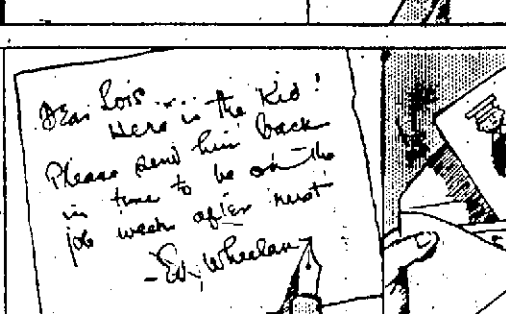 Dear Lois...
Here is the Kid!
Please send him back
in time to be on the
job week after next
-Ed. Wheelan